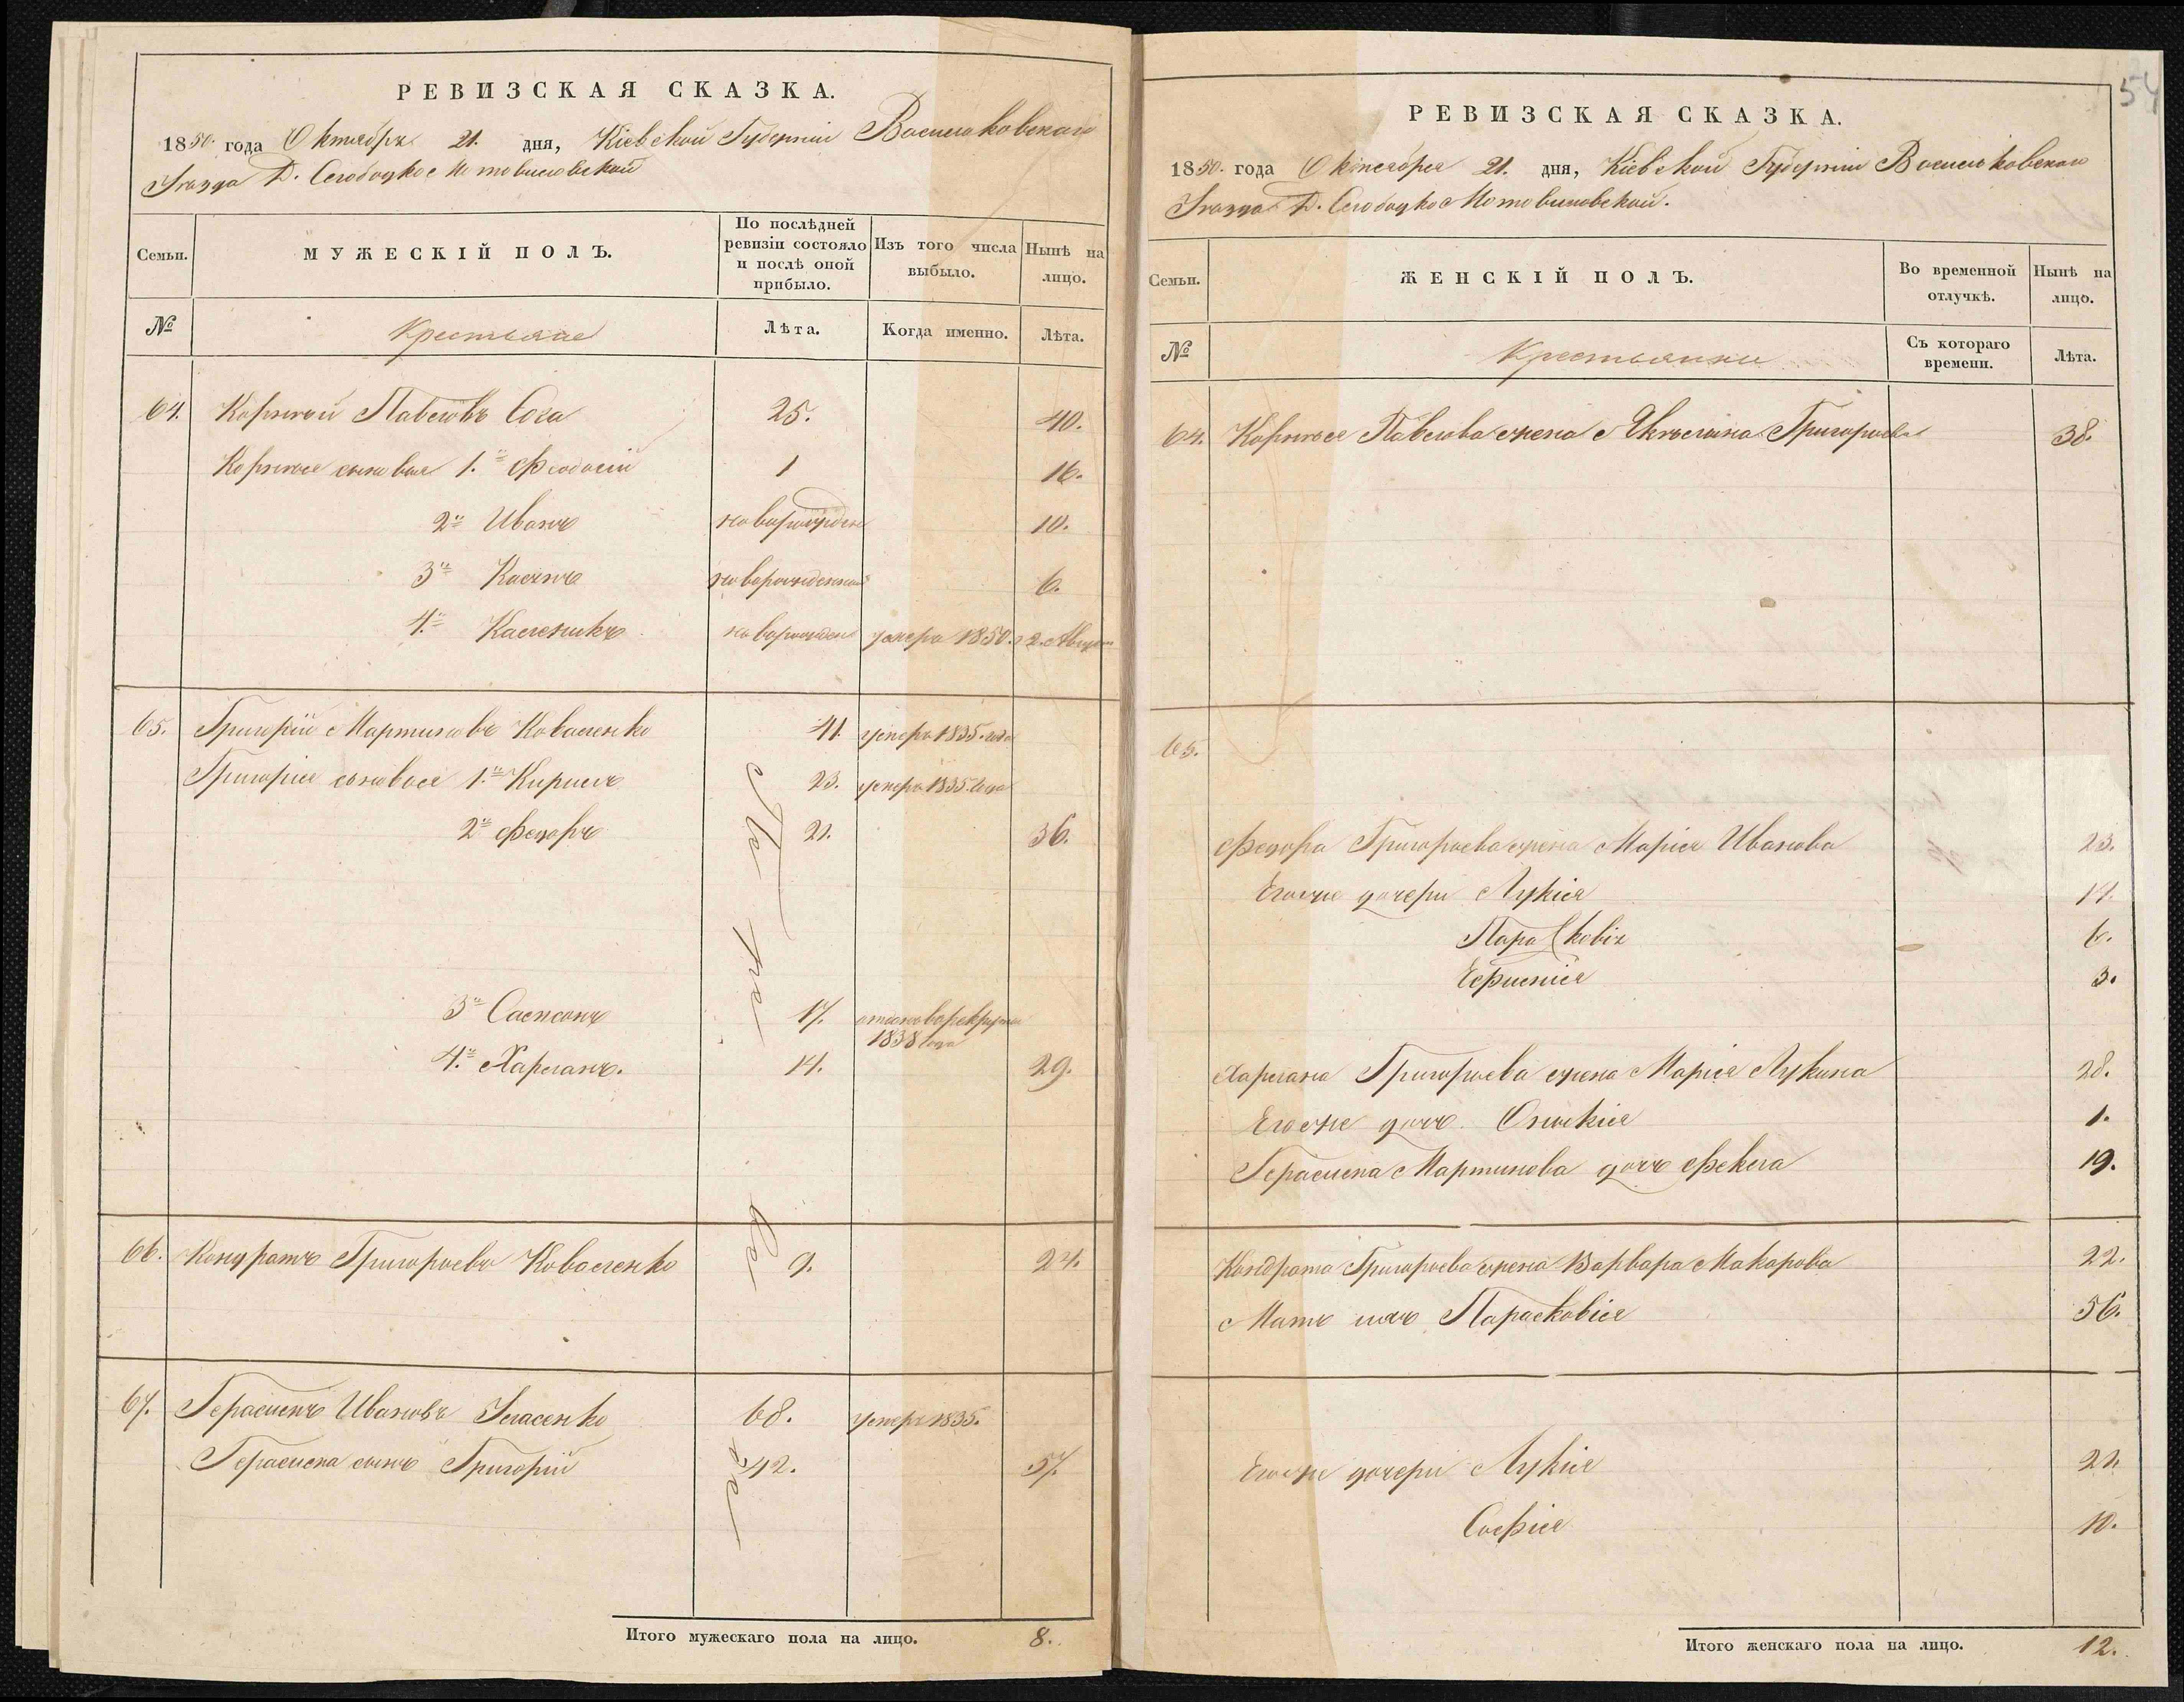 РЕВИЗСКАЯ СКАЗКА.
1850. года Октября 21. дня, Кіевской Губерніи Васильковскаго
Уѣзда Д. Слободкѣ Мотовиловской
Семьи.
МУЖЕСКІЙ ПОЛЪ.
По послѣдней ревизіи состояло и послѣ оной прибыло.
Изъ того числа выбыло.
Нынѣ на лицо.
№
Крестьяне
Лѣта.
Когда именно.
Лѣта.
64. Корнѣй Павловъ Соха 25. 40.
Корнѣя сыновья 1.й Феодосій 1 16.
2й Иванъ новорожден 10.
3й Касянъ новорожденный 6.
4.й Каленикъ новорожден умеръ 1850. 2. Август
65. Григорій Мартиновъ Коваленко 41. умеръ 1835. года
Григорія сыновья 1.й Кирилъ 23. умеръ 1835. года
2й Федоръ 21. 36.
3й Самсонъ 17. отданъ в рекруты 1838 года
4.й Харланъ. 14. 29.
66. Кондратъ Григорьевъ Коваленко 9. 24.
67. Герасимъ Ивановъ Власенко 68. умеръ 1835.
Герасима сынъ Григорій 42. 57.
Итого мужескаго пола на лицо. 8.
54
РЕВИЗСКАЯ СКАЗКА.
1850. года Октября 21. дня, Кіевской Губерніи Васильковскаго
Уѣзда Д. Слободкѣ Мотовиловской.
Семьи.
ЖЕНСКІЙ ПОЛЪ.
Во временной отлучкѣ.
Нынѣ на лицо.
№
Крестьянки
Съ котораго времени.
Лѣта.
64. Корнѣя Павлова жена Акилина Григорьева 38.
65.
Федора Григорьева жена Марія Иванова 23.
Его же дочери Лукія 14.
Парасковія 6.
Ефимія 3.
Харлана Григорьева жена Марія Лукина 28.
Его же дочь Онискія 1.
Герасима Мартинова дочь Фекла 19.
Кондрата Григорьева жена Варвара Макарова 22.
Мать ихъ Парасковія 56.
Его же дочери Лукія 22
Софія 10.
Итого женскаго пола на лицо. 12.